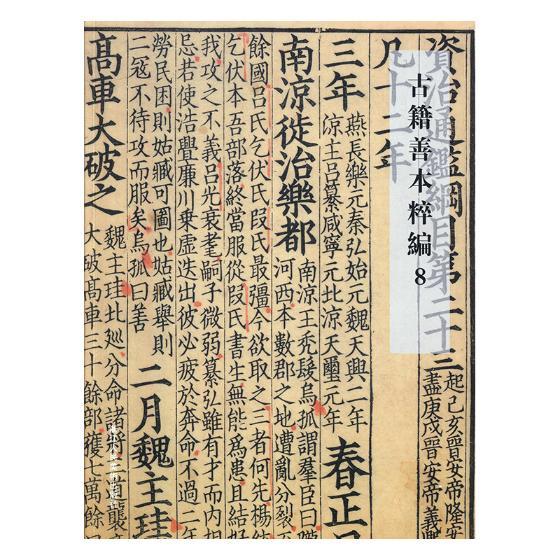 古籍善本粹編 8
資治通鑑綱目第二十三
起己亥晉安帝隆安
盡庚戌晉安帝義
凡十二年
三年
燕長樂元秦弘始元魏天興二年
涼主呂纂咸寧元北涼天璽元年
春正
南涼徙治樂都
南涼王禿髮烏孤謂羣臣曰
河西本數郡之地遭亂分裂
餘國呂氏乞伏氏段氏最彊今欲取之三者何先楊
乞伏本吾部落終當服從段氏書生無能爲患且結好
我攻之不義呂光衰耄嗣子微弱纂弘雖有才而內相
忌若使浩亹廉川乗虛迭出彼必疲於奔命不過二
勞民困則姑臧可圖也姑臧舉則
二冦不待攻而服矣烏孤曰善
二月魏主珪
髙車大破之
魏主珪北廵分命諸
大破髙車三十餘部獲七萬餘